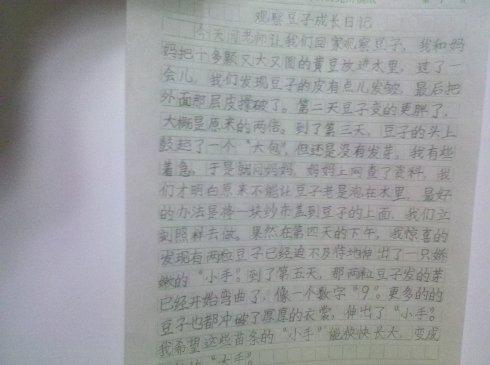 观察豆子成长日记
今天闫老师让我们回家观察豆子，我和妈
妈把十多颗又大又圆的黄豆放进水里，过了一
会儿，我们发现豆子的皮有点儿发皱，最后把
外面那层皮撑破了。第二天豆子变的更胖了，
大概是原来的两倍。到了第三天，豆子的头上
鼓起了一个“大包”，但还是没有发芽，我有些
着急。于是就问妈妈，妈妈上网查了资料，我
们才明白原来不能让豆子老是泡在水里，最好
的办法是将一块纱布盖到豆子的上面，我们立
刻照样去做。果然在第四天的下午，我惊喜的
发现有两粒豆子已经迫不及待地伸出了一只娇
嫩的“小手”。到了第五天，那两粒豆子发的芽
已经开始弯曲了，像一个数字“9”。更多的的
豆子也都冲破了厚厚的衣裳，伸出了“小手”。
我希望这些苗条的“小手”能快快长大，变成
“大手”